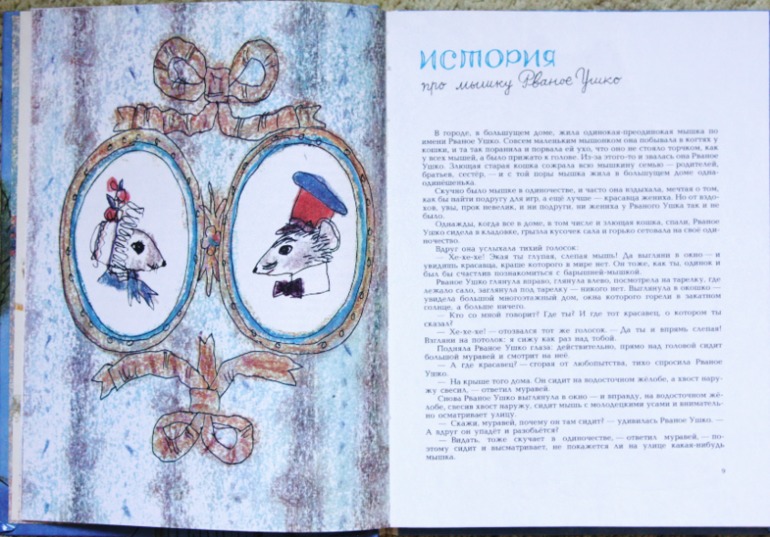 ИСТОРИЯ
про мышку Рваное Ушко
В городе, в большущем доме, жила одинокая-преодинокая мышка по
имени Рваное Ушко. Совсем маленьким мышонком она побывала в когтях у
кошки, и та так поранила и порвала ей ухо, что оно не стояло торчком, как
у всех мышей, а было прижато к голове. Из-за этого-то и звалась она Рваное
Ушко. Злющая старая кошка сожрала всю мышкину семью — родителей,
братьев, сестёр, — и с той поры мышка жила в большущем доме одна-
одинёшенька.
Скучно было мышке в одиночестве, и часто она вздыхала, мечтая о том,
как бы найти подругу для игр, а ещё лучше — красавца жениха. Но от вздо-
хов, увы, прок невелик, и ни подруги, ни жениха у Рваного Ушка так и не
было.
Однажды, когда все в доме, в том числе и злющая кошка, спали, Рваное
Ушко сидела в кладовке, грызла кусочек сала и горько сетовала на своё оди-
ночество.
Вдруг она услыхала тихий голосок:
— Хе-хе-хе! Экая ты глупая, слепая мышь! Да выгляни в окно — и
увидишь красавца, краше которого в мире нет. Он тоже, как ты, одинок и
был бы счастлив познакомиться с барышней-мышкой.
Рваное Ушко глянула вправо, глянула влево, посмотрела на тарелку, где
лежало сало, заглянула под тарелку — никого нет. Выглянула в окошко —
увидела большой многоэтажный дом, окна которого горели в закатном
солнце, а больше ничего.
— Кто со мной говорит? Где ты? И где тот красавец, о котором ты
сказал?
— Хе-хе-хе! — отозвался тот же голосок. — Да ты и впрямь слепая!
Взгляни на потолок: я сижу как раз над тобой.
Подняла Рваное Ушко глаза: действительно, прямо над головой сидит
большой муравей и смотрит на неё.
— А где красавец? — сгорая от любопытства, тихо спросила Рваное
Ушко.
— На крыше того дома. Он сидит на водосточном жёлобе, а хвост нару-
жу свесил, — ответил муравей.
Снова Рваное Ушко выглянула в окно — и вправду, на водосточном жё-
лобе, свесив хвост наружу, сидит мышь с молодецкими усами и вниматель-
но осматривает улицу.
— Скажи, муравей, почему он там сидит? — удивилась Рваное Ушко. —
А вдруг он упадёт и разобьётся?
— Видать, тоже скучает в одиночестве, — ответил муравей, — по-
этому сидит и высматривает, не покажется ли на улице какая-нибудь
мышка.
9